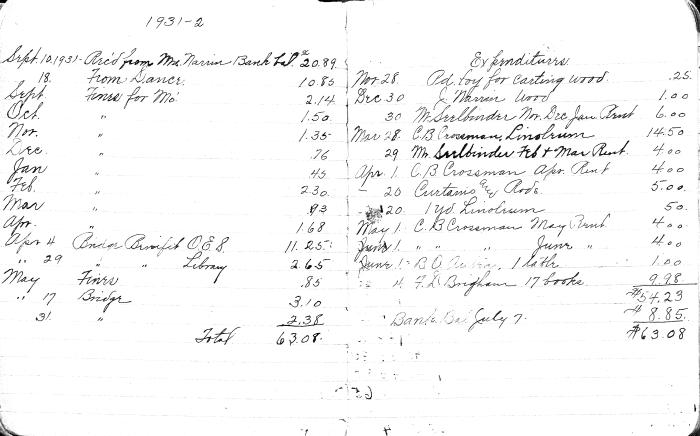 1931-2
Sept. 10, 1931- Rec'd from Mrs. Narrin Bank Bal. $20.89
18. From Dance. 10.85
Sept. Fines for Mo. 2.14
Oct. " 1.50
Nov. " 1.35
Dec. " .76
Jan " .45
Feb. " 2.30
Mar " .93
Apr. " 1.68
Apr 4 Bridge Benefit O.E.S 11.25
" 29 " " Library 2.65
May Fines .85
" 17 Bridge 3.10
31. " 2.38
Total 63.08
Expenditures
Nov 28. Pd. boy for carting wood. .25
Dec 30 J. Narrin Wood 1.00
30 Mr. Seelbinder Nov. Dec Jan. Rent 6.00
Mar 28. C.B Crossman, Linoleum 14.50
29 Mr. Seelbinder Feb + Mar Rent. 4.00
Apr. 1. C.B Crossman Apr. Rent 4.00
" 20 Curtains and Rods. 5.00
" 20 1 yd. Linoleum 50.
May 1. C.B Crossman May Rent 4.00
June 1. " " " June " 4.00
June 1. B.O. 1 table 1.00
" 4. F.D. Brigham 17 books. 9.98
$54.23
Bank Bal July 7. $8.85
$63.08